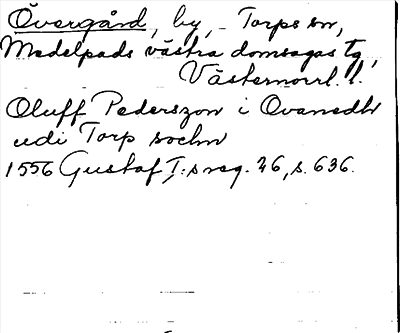 Övergård, by, Torps sn,
Medelpads västra domsagas tg,
Västernorrl. l.
Oluff Pederszon i Ovanedh
udi Torp sochn
1556 Gustaf I:s reg. 26, s. 636.